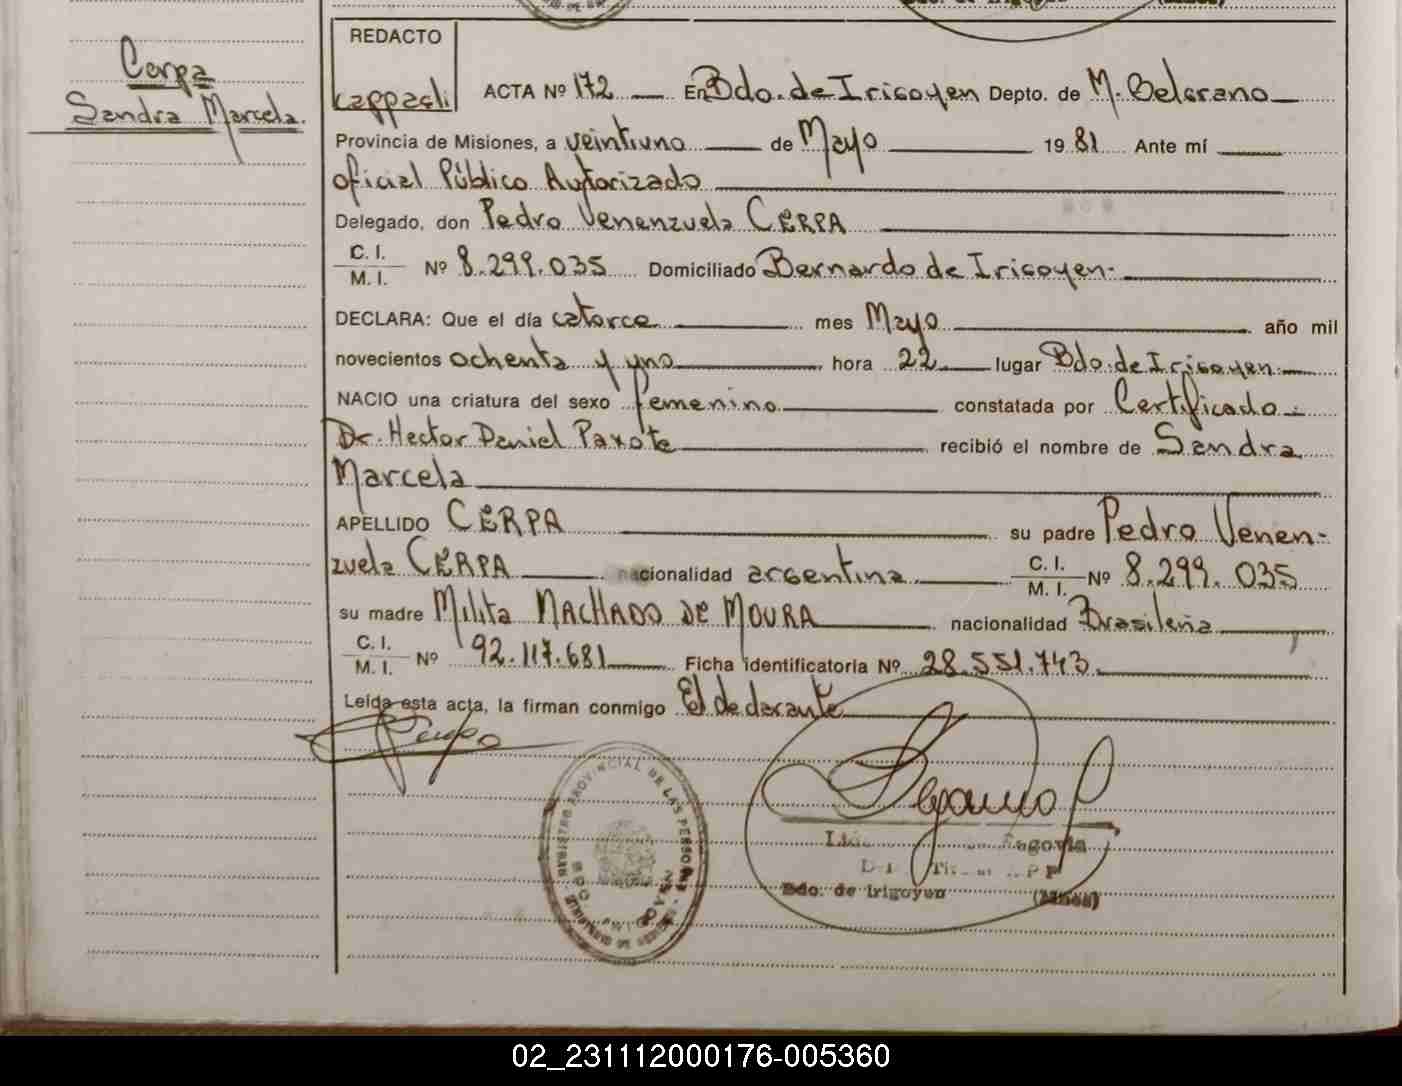 Cerpa
Sandra Marcela.
REDACTO
cappasli
ACTA Nº 172 En Bdo. de Irigoyen Depto. de M. Belgrano
Provincia de Misiones, a veintiuno de Mayo 1981 Ante mí
oficial Público Autorizado
Delegado, don Pedro Venenzuela CERPA
C. I.
M. I. Nº 8.299.035 Domiciliado Bernardo de Irigoyen.
DECLARA: Que el día catorce mes Mayo año mil
novecientos ochenta y uno hora 22 lugar Bdo. de Irigoyen
NACIO una criatura del sexo femenino constatada por Certificado
Dr. Hector Daniel Paxote recibió el nombre de Sandra
Marcela
APELLIDO CERPA su padre Pedro Venen-
zuela CERPA nacionalidad argentina C. I.
M. I. Nº 8.299.035
su madre Milita MACHADO DE MOURA nacionalidad Brasileña
C. I.
M. I. Nº 92.117.681 Ficha identificatoria Nº 28.551.743.
Leida esta acta, la firman conmigo El declarante
REGISTRO PROVINCIAL DE LAS PERSONAS
Segovia
Bdo. de Irigoyen (Mnes)
02_231112000176-005360